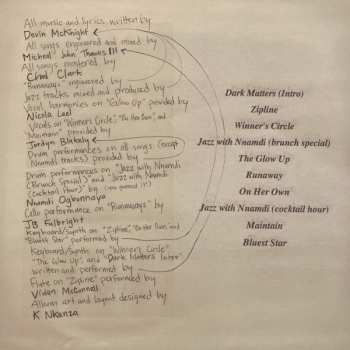 All music and lyrics written by
Devin McKnight
All songs engineered and mixed by
Micheal "John" Thomas III
All songs mastered by
Chad Clark
"Runaway" engineered by
Jazz tracks mixed and produced by
Vocal harmonies on "Glow Up" provided by
Nicola Leel
Vocals on "Winners Circle", "On Her Own", and
"Maintain" provided by
Jordyn Blakely
Drum performances on all songs (except
Nnamdi tracks) provided by
Drum performances on "Jazz with Nnamdi
(Brunch Special)" and "Jazz with Nnamdi
(Cocktail Hour)" by
Nnamdi Ogbonnaya
Cello performance on "Runaways" by
JB Fulbright
Keyboard/synth on "Zipline", "On Her Own," and
"Bluest Star" performed by
Keyboard/synth on "Winners Circle"
"The Glow Up", and "Dark Matters Intro"
written and performed by
Flute on "Zipline" performed by
Vivian McConnell
Album art and layout designed by
K Nkanza
Dark Matters (Intro)
Zipline
Winner's Circle
Jazz with Nnamdi (brunch special)
The Glow Up
Runaway
On Her Own
Jazz with Nnamdi (cocktail hour)
Maintain
Bluest Star